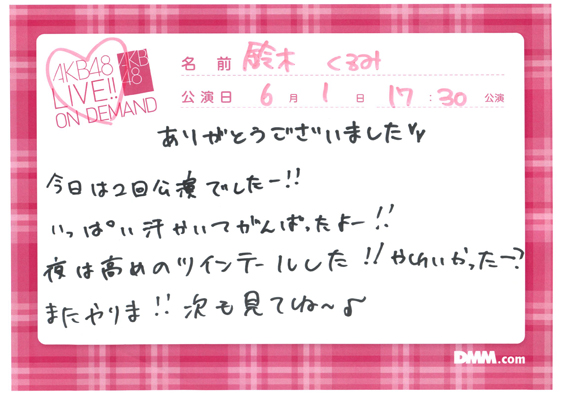 AKB48
LIVE!!
ON DEMAND
AKB
48
名前 鈴木 くるみ
公演日 6月1日 17:30 公演
ありがとうございました♡♡
今日は2回公演でしたー!!
いっぱい汗かいてがんばったよー!!
夜は高めのツインテールした!! かわいかったー?
またやりま!! 次も見てね〜♪
DMM.com